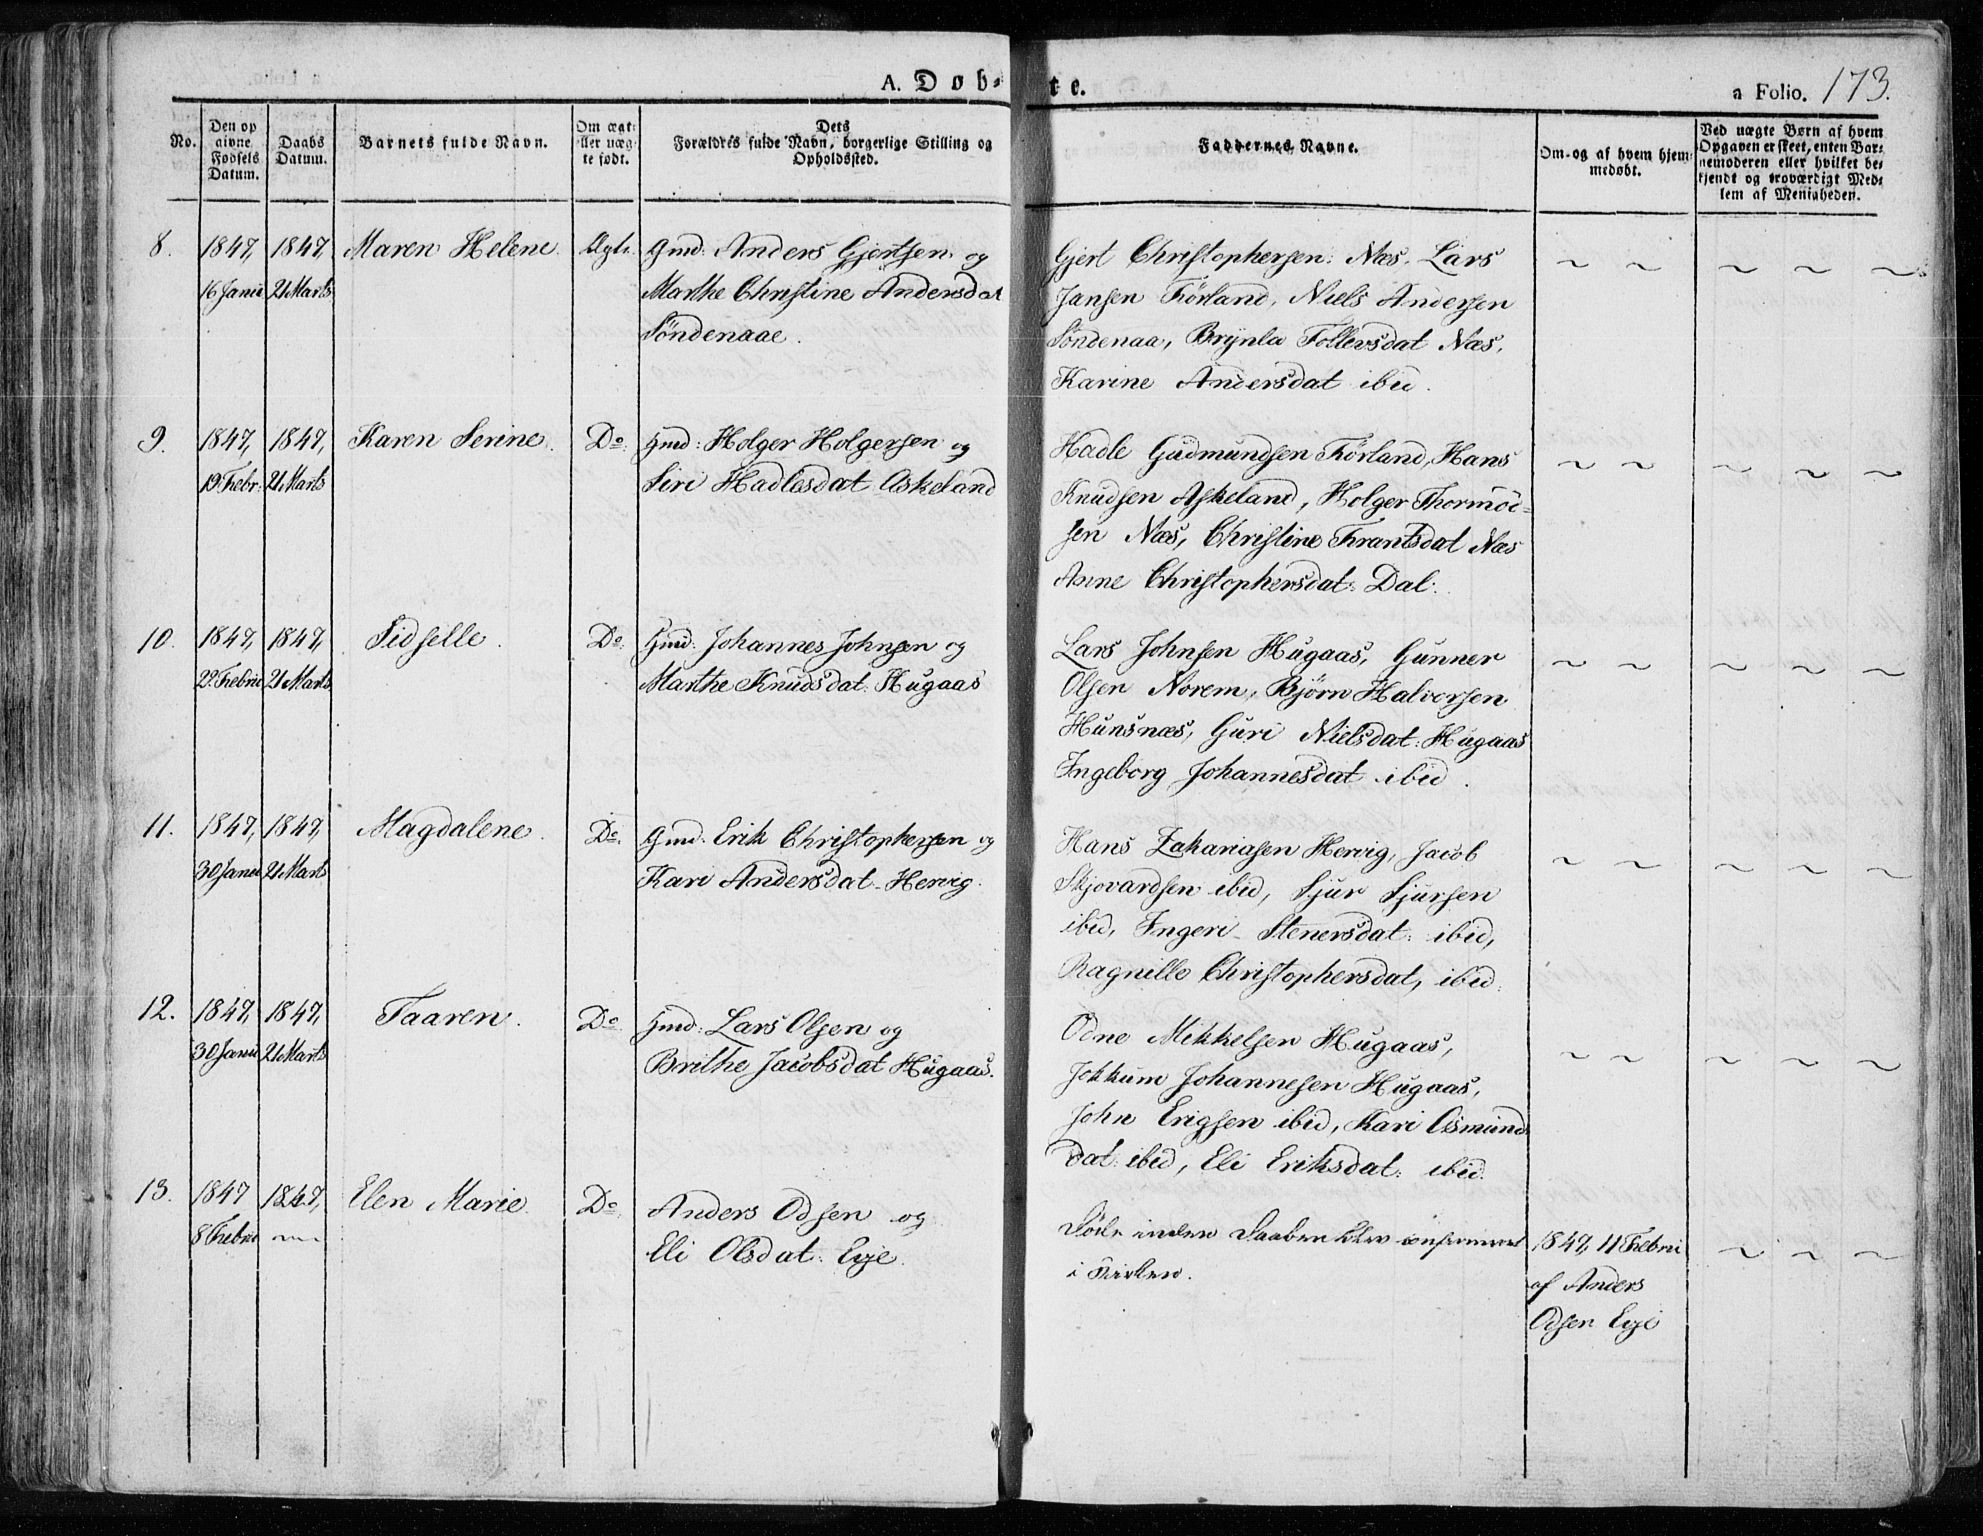 A. Døb-
te.
a Folio. 173.
No.
Den op
givne
Fødsels
Datum.
Daabs
Datum.
Barnets fulde Navn.
Om ægte
eller uæg-
te født.
Dets
Forældres fulde Navn, borgerlige Stilling og
Opholdssted.
Faddernes Navne.
Om- og af hvem hjem-
medøbt.
Ved uægte Børn af hvem
Opgaven er skeet, enten Bar-
nemoderen eller hvilket be-
kjendt og troværdigt Med-
lem af Menigheden.
8.
1847,
16 Janu
1847,
21 Marts
Maren Helene
Ægte
Gmd: Anders Gjertsen og
Marthe Christine Andersdat
Søndenaae.
Gjert Christophersen Næs, Lars
Jansen Førland, Niels Andersen
Søndenaa, Brynla Tollevsdat Næs,
Karine Andersdat ibid.
9.
1847,
19 Febr:
1847,
21 Marts
Karen Serine.
Do.
Gmd: Holger Holgersen og
Siri Hadlesdat Askeland
Hadle Gudmundsen Førland, Hans
Knudsen Askeland, Holger Thormod-
sen Næs, Christine Frantsdat Næs
Anne Christophersdat: Dal.
10.
1847,
22 Febru
1847,
21 Marts
Sidselle.
Do.
Gmd: Johannes Johnsen og
Marthe Knudsdat: Hugaas
Lars Johnsen Hugaas, Gunner
Olsen Norem, Bjørn Halvorsen
Hunsnæs, Guri Nielsdat: Hugaas
Ingeborg Johannesdat ibid.
11.
1847,
30 Janu
1847,
21 Marts
Magdalene.
Do.
Gmd: Erik Christophersen og
Kari Andersdat Hervig.
Hans Zakariasen Hervig, Jacob
Skjovardsen ibid, Sjur Sjursen
ibid, Ingeri Stenersdat: ibid,
Ragnille Christophersdat, ibid.
12.
1847,
30 Janu
1847,
21 Marts
Taaren.
Do.
Gmd: Lars Olsen og
Brithe Jacobsdat Hugaas.
Odne Mikkelsen Hugaas,
Jokkum Johannesen Hugaas,
John Erigsen ibid, Kari Osmund
dat: ibid, Eli Eriksdat: ibid.
13.
1847
8 Febru
1847,
Elen Marie.
Do.
Anders Odsen og
Eli Olsdat: Eyje.
Døde inden Daaben blev confirmeret
i Kirken.
1847, 11 Febru
af Anders
Odsen Eyje